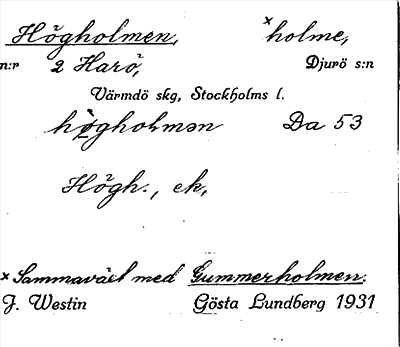 Högholmen, ˣholme,
n:r 2 Harö, Djurö s:n
Värmdö skg, Stockholms l.
hò̤gholmən Da 53
Högh., ek,
× Sammaväxt med Gummerholmen.
J. Westin Gösta Lundberg 1931